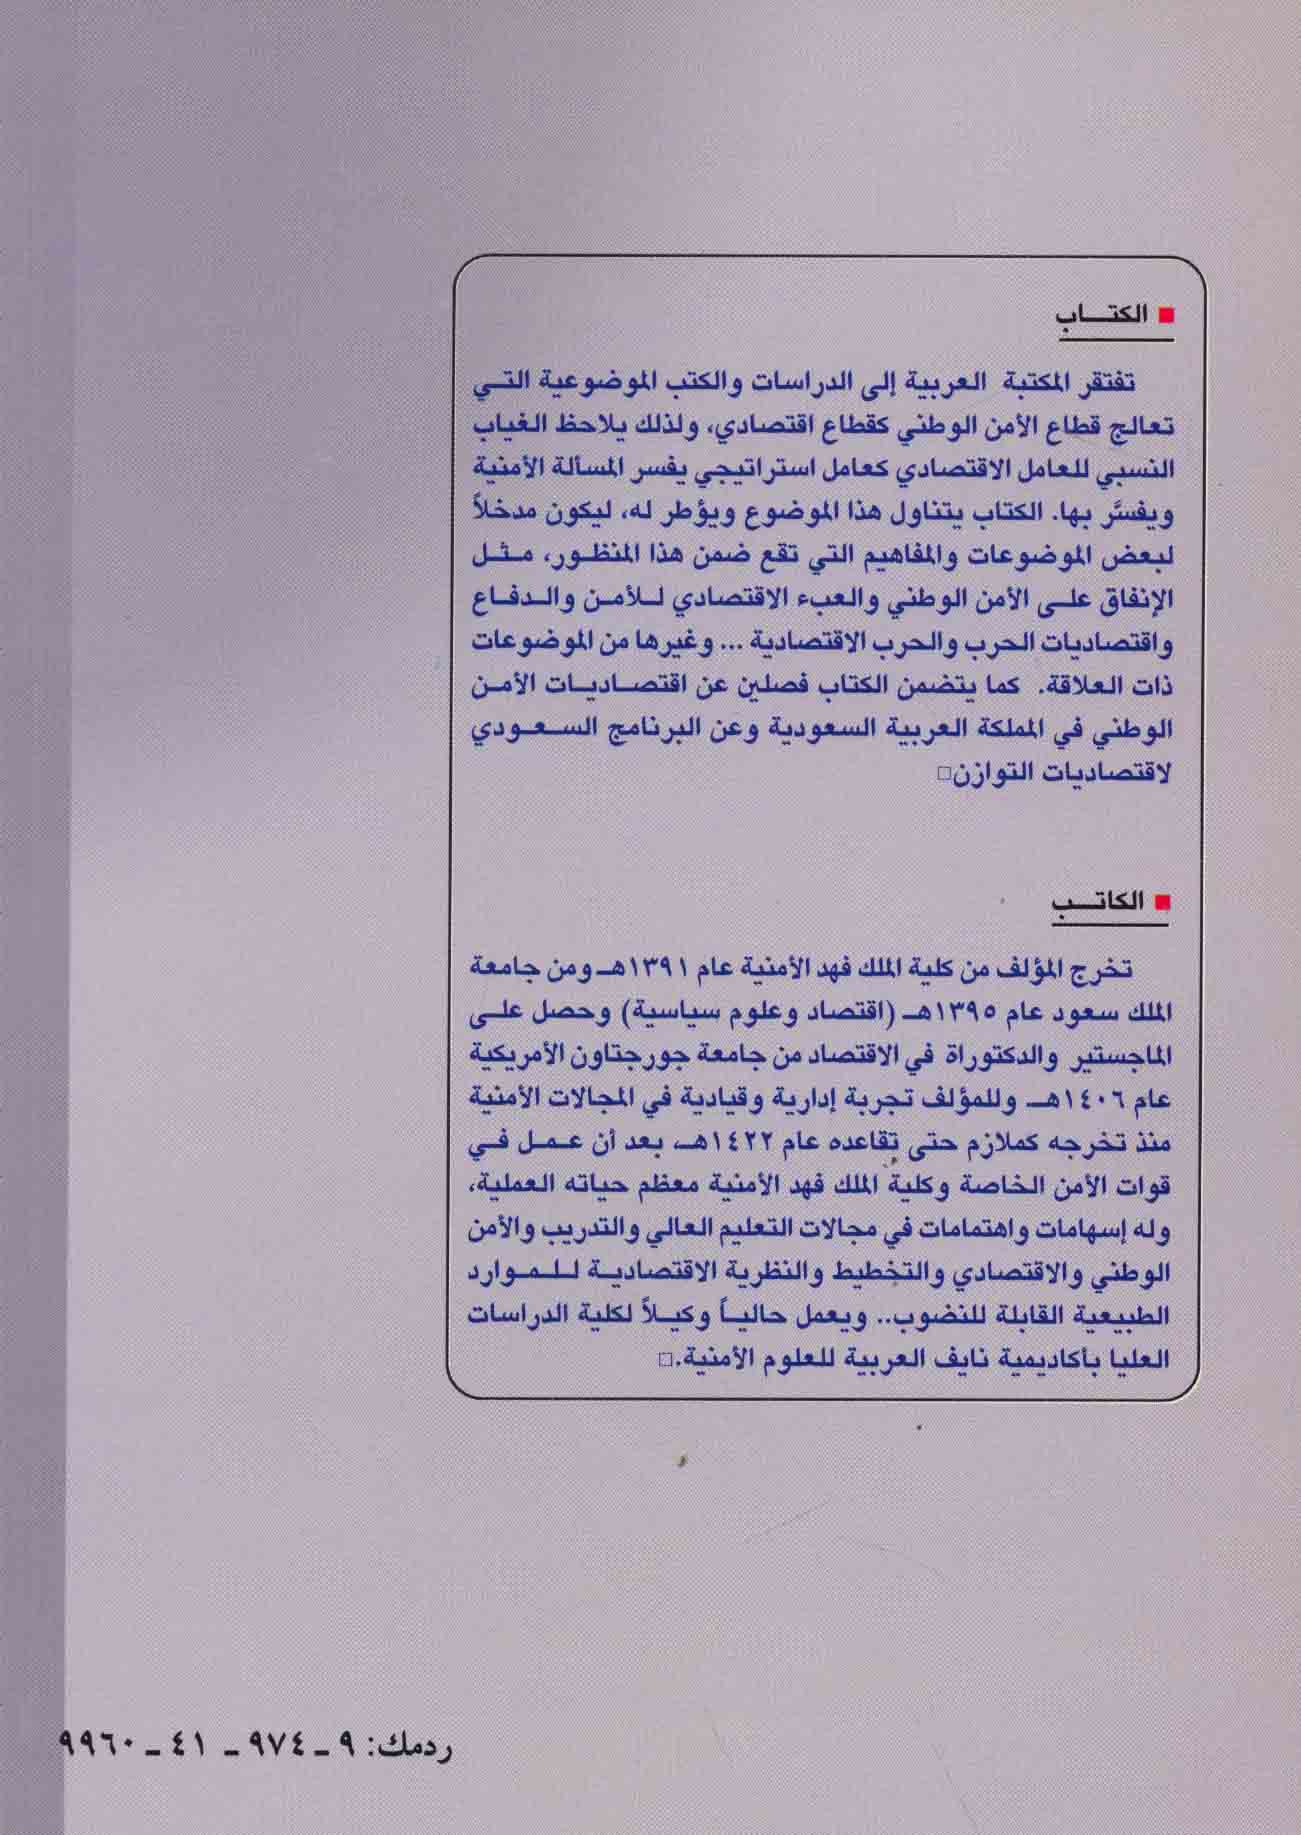 الكتـــاب
تفتقر المكتبة العربية إلى الدراسات والكتب الموضوعية التـي
تعالج قطاع الأمن الوطني كقطاع اقتصادي، ولذلك يلاحظ الغياب
النسبي للعامل الاقتصادي كعامل استراتيجي يفسر المسألة الأمنية
ويفسَّر بها. الكتاب يتناول هذا الموضوع ويؤطر له، ليكون مدخلاً
لبعض الموضوعات والمفاهيم التي تقع ضمن هذا المنظـور، مـثـل
الإنفاق علـى الأمن الوطني والعبء الاقتصادي لـلأمـن والـدفـاع
واقتصاديات الحرب والحرب الاقتصادية ... وغيرها من الموضوعات
ذات العلاقة. كما يتضمن الكتاب فصلين عن اقتصـاديـات الأمـن
الوطني في المملكة العربية السعودية وعن البرنامج السـعـودي
لاقتصاديات التوازن□
الكاتـــب
تخرج المؤلف من كلية الملك فهد الأمنية عام ١٣٩١هـ ومن جامعة
الملك سعود عام ١٣٩٥هـ (اقتصاد وعلوم سياسية) وحصل علـى
الماجستير والدكتوراة في الاقتصاد من جامعة جورجتاون الأمريكية
عام ١٤٠٦هـ وللمؤلف تجربة إدارية وقيادية في المجالات الأمنية
منذ تخرجه كملازم حتى تقاعده عام ١٤٢٢هـ، بعد أن عـمـل فـي
قوات الأمن الخاصة وكلية الملك فهد الأمنية معظم حياته العملية،
وله إسهامات واهتمامات في مجالات التعليم العالي والتدريب والأمن
الوطني والاقتصادي والتخطيط والنظرية الاقتصاديـة لـلـمـوارد
الطبيعية القابلة للنضوب.. ويعمل حاليـاً وكيـلاً لكلية الدراسات
العليا بأكاديمية نايف العربية للعلوم الأمنية.□
ردمك: ٩ ـ ٩٧٤ ـ ٤١ ـ ٩٩٦٠